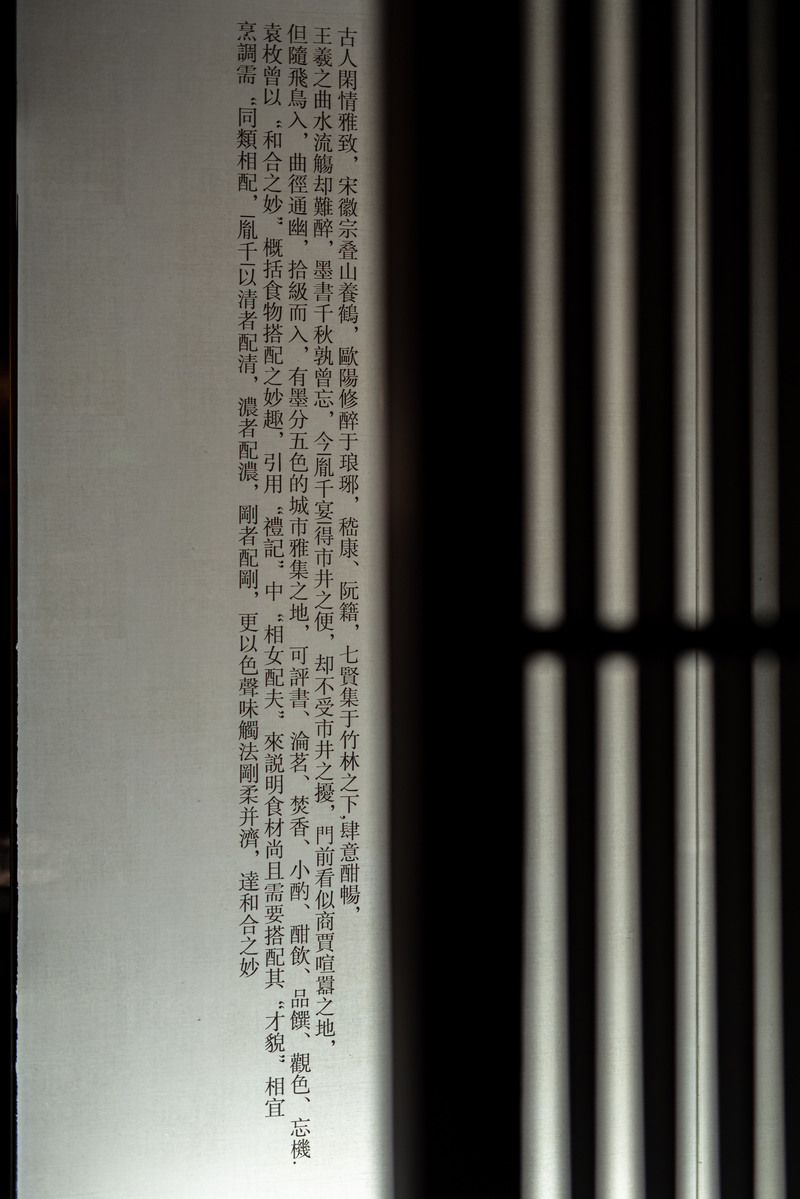 古人閑情雅致，宋徽宗叠山養鶴，歐陽修醉于琅琊，嵇康、阮籍，七賢集于竹林之下,肆意酣暢，
王羲之曲水流觴却難醉，墨書千秋孰曾忘，今|胤千宴|得市井之便，却不受市井之擾，門前看似商賈喧囂之地，
但隨飛鳥入，曲徑通幽，拾級而入，有墨分五色的城市雅集之地，可評書、淪茗、焚香、小酌、酣飲、品饌、觀色、忘機.
袁枚曾以“和合之妙”概括食物搭配之妙趣，引用“禮記”中“相女配夫”來説明食材尚且需要搭配其“才貌”相宜
烹調需“同類相配，|胤千|以清者配清，濃者配濃，剛者配剛，更以色聲味觸法剛柔并濟，達和合之妙